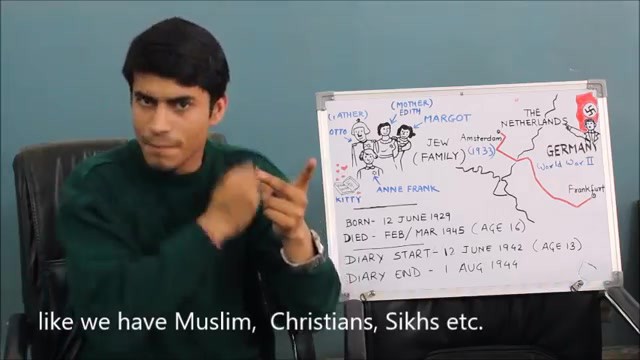 (FATHER)
OTTO
(MOTHER)
EDITH
MARGOT
JEW
(FAMILY)
ANNE FRANK
KITTY
THE
NETHERLANDS
Amsterdam
(1933)
GERMANY
World War II
Frankfurt
BORN- 12 JUNE 1929
DIED- FEB/MAR 1945 (AGE 16)
DIARY START- 12 JUNE 1942 (AGE 13)
DIARY END - 1 AUG 1944
like we have Muslim, Christians, Sikhs etc.